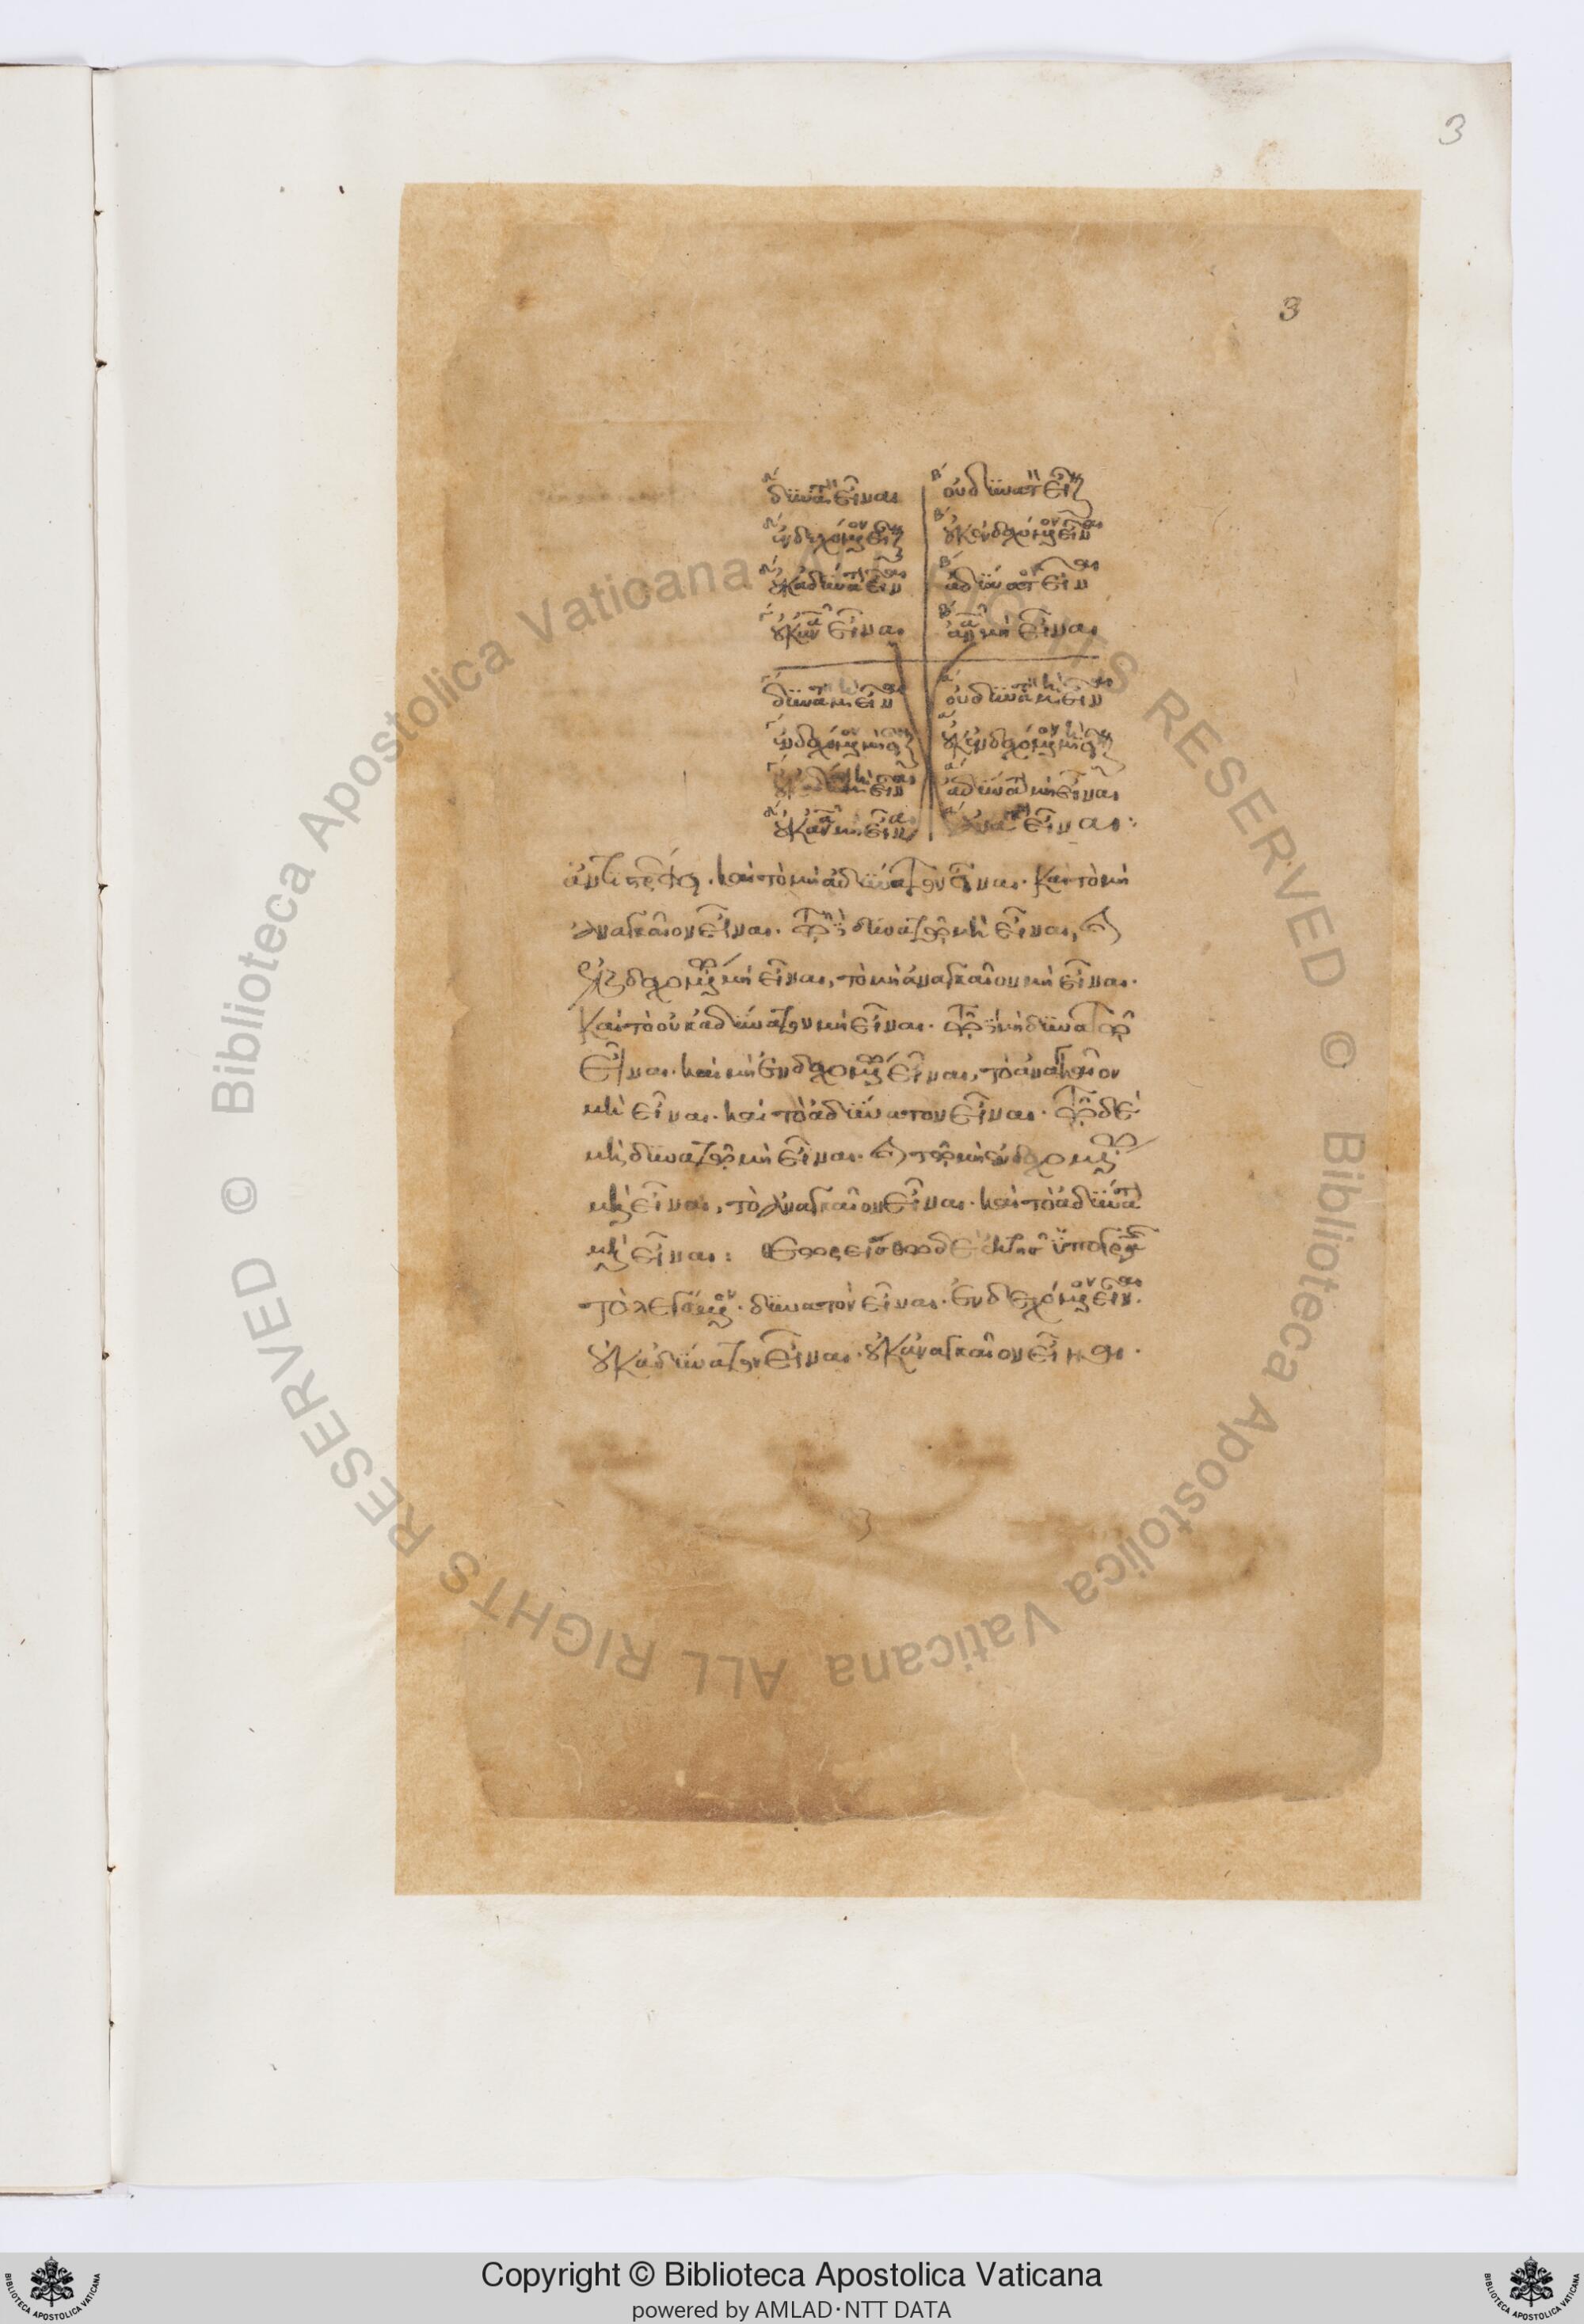 3
3
δυνατὸν εἶναι οὐ δυνατὸν εἶναι
ἐνδεχόμενον εἶναι οὐκ ἐνδεχόμενον εἶναι
οὐκ ἀδύνατον εἶναι ἀδύνατον εἶναι
οὐκ ἀναγκαῖον εἶναι ἀναγκαῖον μὴ εἶναι
δυνατὸν μὴ εἶναι οὐ δυνατὸν μὴ εἶναι
ἐνδεχόμενον μὴ εἶναι οὐκ ἐνδεχόμενον μὴ εἶναι
μὴ εἶναι ἀδύνατον μὴ εἶναι
οὐκ ἀναγκαῖον μὴ εἶναι ἀναγκαῖον εἶναι:
ἀντιστρέφει. καὶ τὸ μὴ ἀδύνατον εἶναι. καὶ τὸ μὴ
ἀναγκαῖον εἶναι. τῷ δὲ δυνατῷ μὴ εἶναι, καὶ
ἐνδεχομένῳ μὴ εἶναι, τὸ μὴ ἀναγκαῖον μὴ εἶναι.
καὶ τὸ οὐκ ἀδύνατον μὴ εἶναι. τῷ δὲ μὴ δυνατῷ
εἶναι. καὶ μὴ ἐνδεχομένῳ εἶναι, τὸ ἀναγκαῖον
μὴ εἶναι. καὶ τὸ ἀδύνατον εἶναι. τῷ δὲ
μὴ δυνατῷ μὴ εἶναι. καὶ τῷ μὴ ἐνδεχομένῳ
μὴ εἶναι, τὸ ἀναγκαῖον εἶναι. καὶ τὸ ἀδύνατον
μὴ εἶναι: θεωρείσθω δὲ ἐκ τῆς ὑπογραφῆς
τὸ λεγόμενον. δυνατὸν εἶναι. ἐνδεχόμενον εἶναι.
οὐκ ἀδύνατον εἶναι. οὐκ ἀναγκαῖον εἶναι.
Copyright © Biblioteca Apostolica Vaticana
powered by AMLAD·NTT DATA